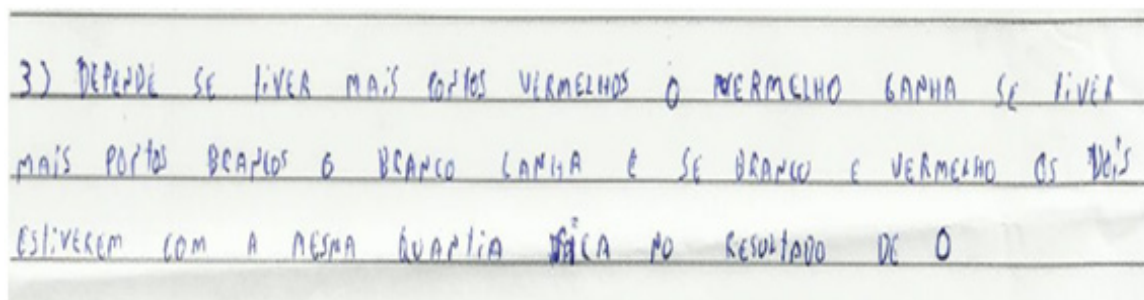 3) DEPENDE SE TIVER MAIS PONTOS VERMELHOS O VERMELHO GANHA SE TIVER
MAIS PONTOS BRANCOS O BRANCO GANHA E SE BRANCO E VERMELHO OS DOIS
ESTIVEREM COM A MESMA QUANTIA FICA NO RESULTADO DE 0